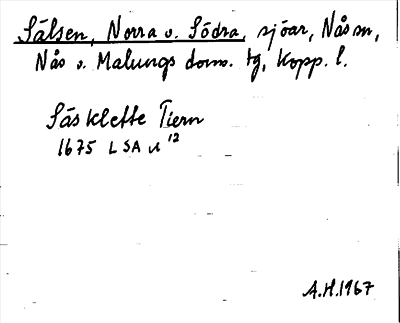 Sälsen, Norra o. Södra, sjöar, Nås sn,
Nås o. Malungs doms. tg, Kopp. l.
Säsklette Tiern
1675 LSA u 12
A.H. 1967